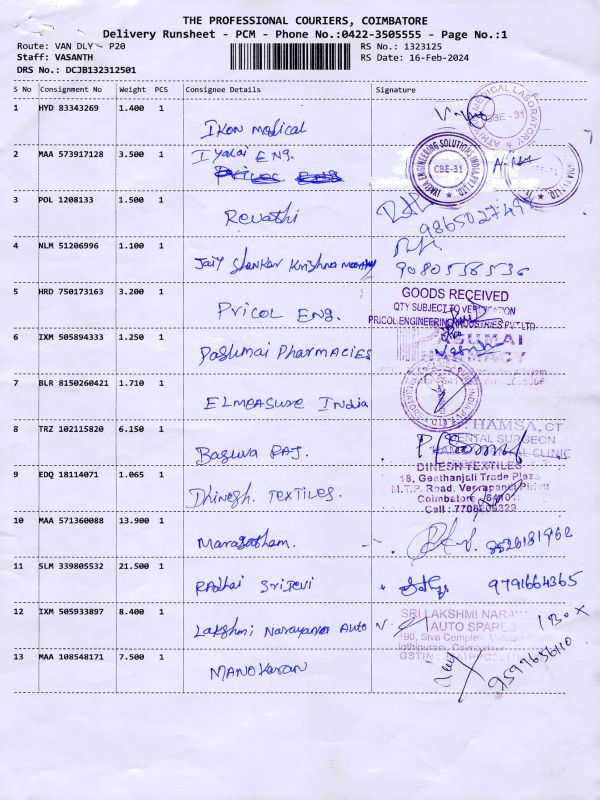 THE PROFESSIONAL COURIERS, COIMBATORE
Delivery Runsheet - PCM - Phone No.:0422-3505555 - Page No.:1
Route: VAN DLY - P20
RS No.: 1323125
Staff: VASANTH
RS Date: 16-Feb-2024
DRS No.: DCJB132312501
S No Consignment No Weight PCS Consignee Details Signature
1 HYD 83343269 1.400 1
Ikon medical
MEDICAL LABORATORY
CBE - 31
2 MAA 573917128 3.500 1 Iyalai ENG.
Pricol ENG.
CBE-31
3 POL 1208133 1.500 1
Revathi
4 NLM 51206996 1.100 1
Jaiy Shankar Krishna
9080558536
5 HRD 750173163 3.200 1
Pricol Eng.
GOODS RECEIVED
QTY SUBJECT TO VERIFICATION
PRICOL ENGINEERING INDUSTRIES PVT LTD
6 IXM 505894333 1.250 1
Pasumai Pharmacies
7 BLR 8150260421 1.710 1
Elmeasure India
8 TRZ 102115820 6.150 1
Basuva Raj.
HAMSA, CT
DENTAL SURGEON
CLINIC
9 EDQ 18114071 1.065 1
Dhinesh. Textiles.
DINESH TEXTILES
18, Geethanjali Trade Plaza
M.T.P. Road, Veerapandi Pirivu
Coimbatore
Cell : 7708209329
10 MAA 571360088 13.900 1
8526181962
11 SLM 339805532 21.500 1
Radhai Sridevi
9791664365
12 IXM 505933897 8.400 1
Lakshmi Narayana Auto
SRI LAKSHMI NARAYA
AUTO SPARES
190, Siva Complex,
GSTIN
1 Box
13 MAA 108548171 7.500 1
Manokaran
9597656110